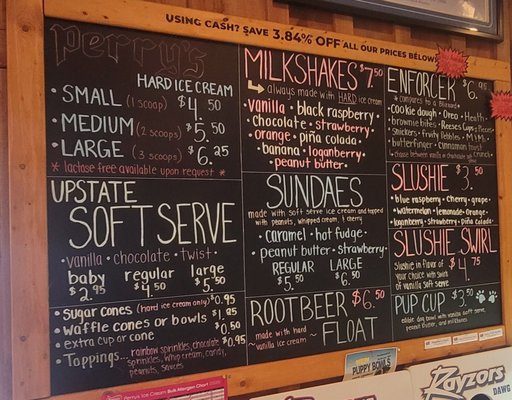 USING CASH? SAVE 3.84% OFF ALL OUR PRICES BELOW!
Perry's
HARD ICE CREAM
• SMALL (1 scoop) $4.50
• MEDIUM (2 scoops) $5.50
• LARGE (3 scoops) $6.25
* lactose free available upon request *
UPSTATE
SOFT SERVE
vanilla • chocolate • twist
baby regular large
$2.95 $4.50 $5.50
• Sugar cones (hard ice cream only) $0.95
• Waffle cones or bowls
• extra cup or cone $0.50
• Toppings... rainbow sprinkles, chocolate $0.95
sprinkles, whip cream, candy,
peanuts, sauces
Perry's Ice Cream Bulk Allergen Chart
MILKSHAKES $7.50
always made with HARD ice cream
vanilla • black raspberry
chocolate • strawberry
orange • piña colada
banana • loganberry
peanut butter
SUNDAES
made with soft serve ice cream and topped
with peanuts, whipped cream, & cherry
caramel • hot fudge
peanut butter • strawberry
REGULAR LARGE
$5.50 $6.50
ROOTBEER $6.50
made with hard
vanilla ice cream
FLOAT
PUPPY BOWLS
ENFORCER $6.95
* compares to a Blizzard *
Cookie dough • Oreo • Heath
brownie bites • Reese's Cups
Snickers • fruity Pebbles • M&M's
butterfinger • Cinnamon toast
crunch
SLUSHIE $3.50
• blue raspberry • Cherry • grape
• watermelon • lemonade • Orange
• loganberry • Strawberry • Piña colada
SLUSHIE SWIRL
Slushie in flavor of
your choice with swirl
of vanilla soft serve
$4.75
PUP CUP $3.50
edible dog bowl with vanilla soft serve,
peanut butter, and milkbones
Rayzors
DAWG